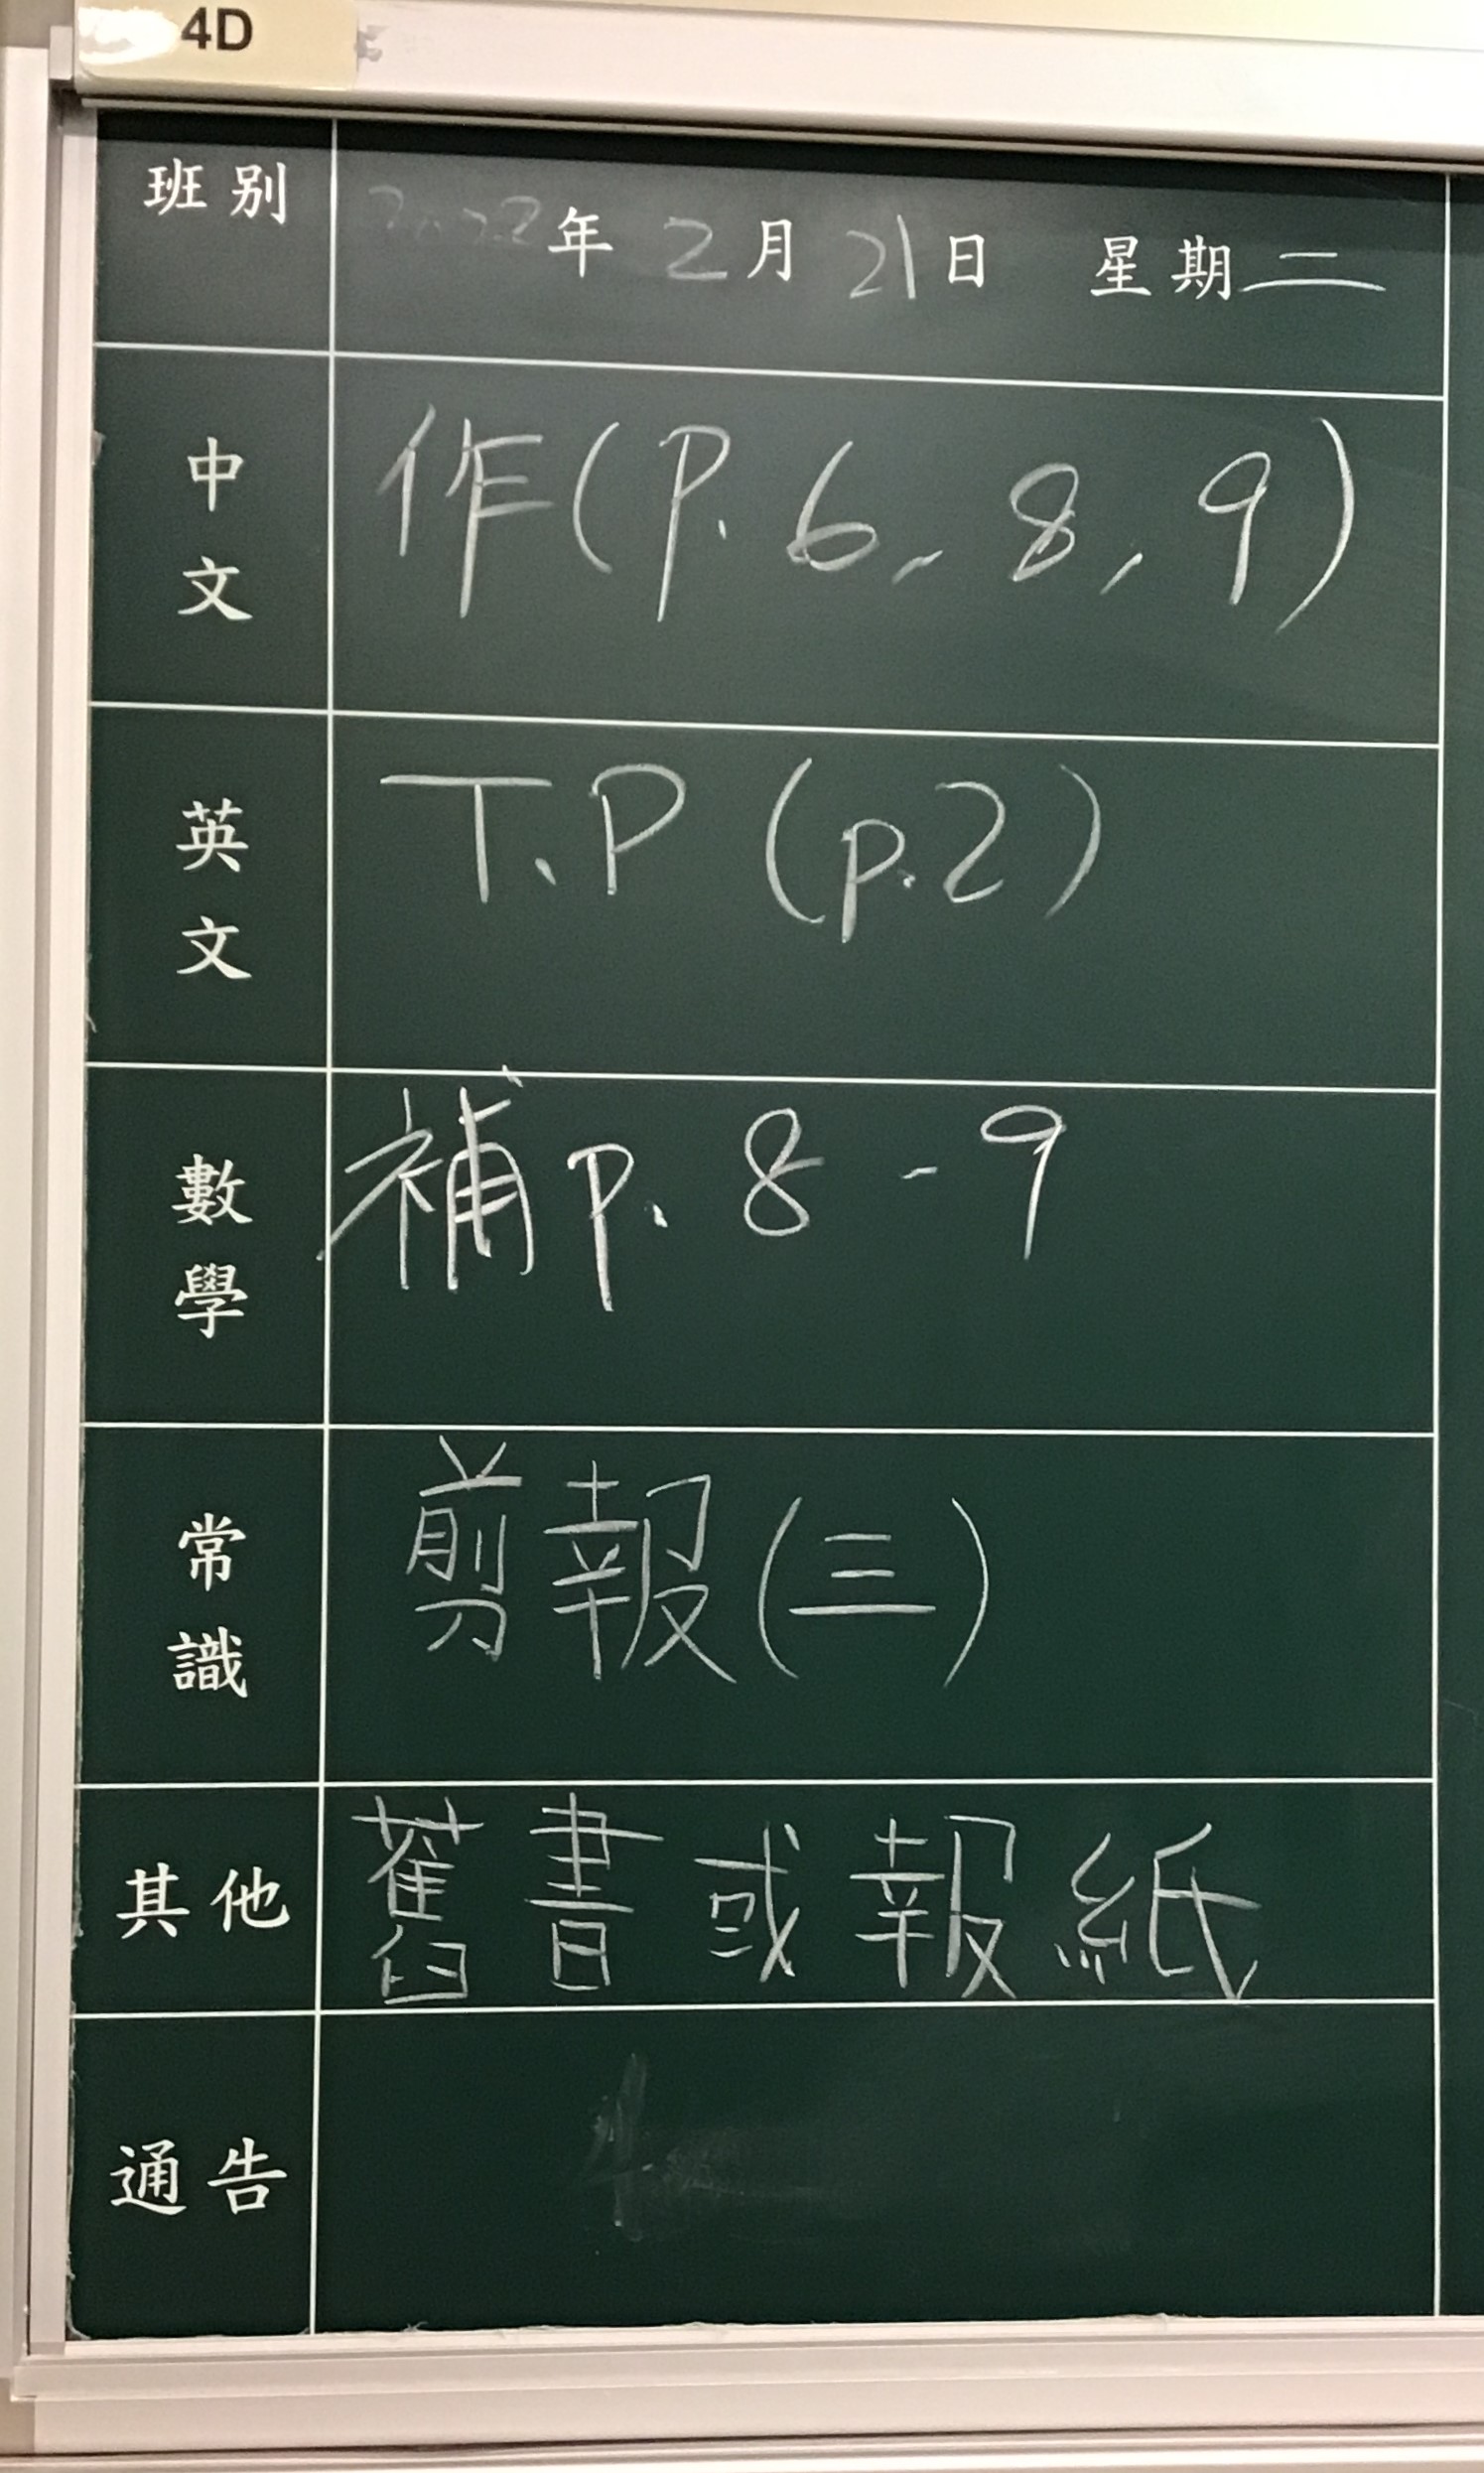 4D
班別 年 2 月 21 日 星期二
中文 作(P. 6, 8, 9)
英文 T.P (p.2)
數學 補 p. 8 - 9
常識 剪報(三)
其他 舊書或報紙
通告